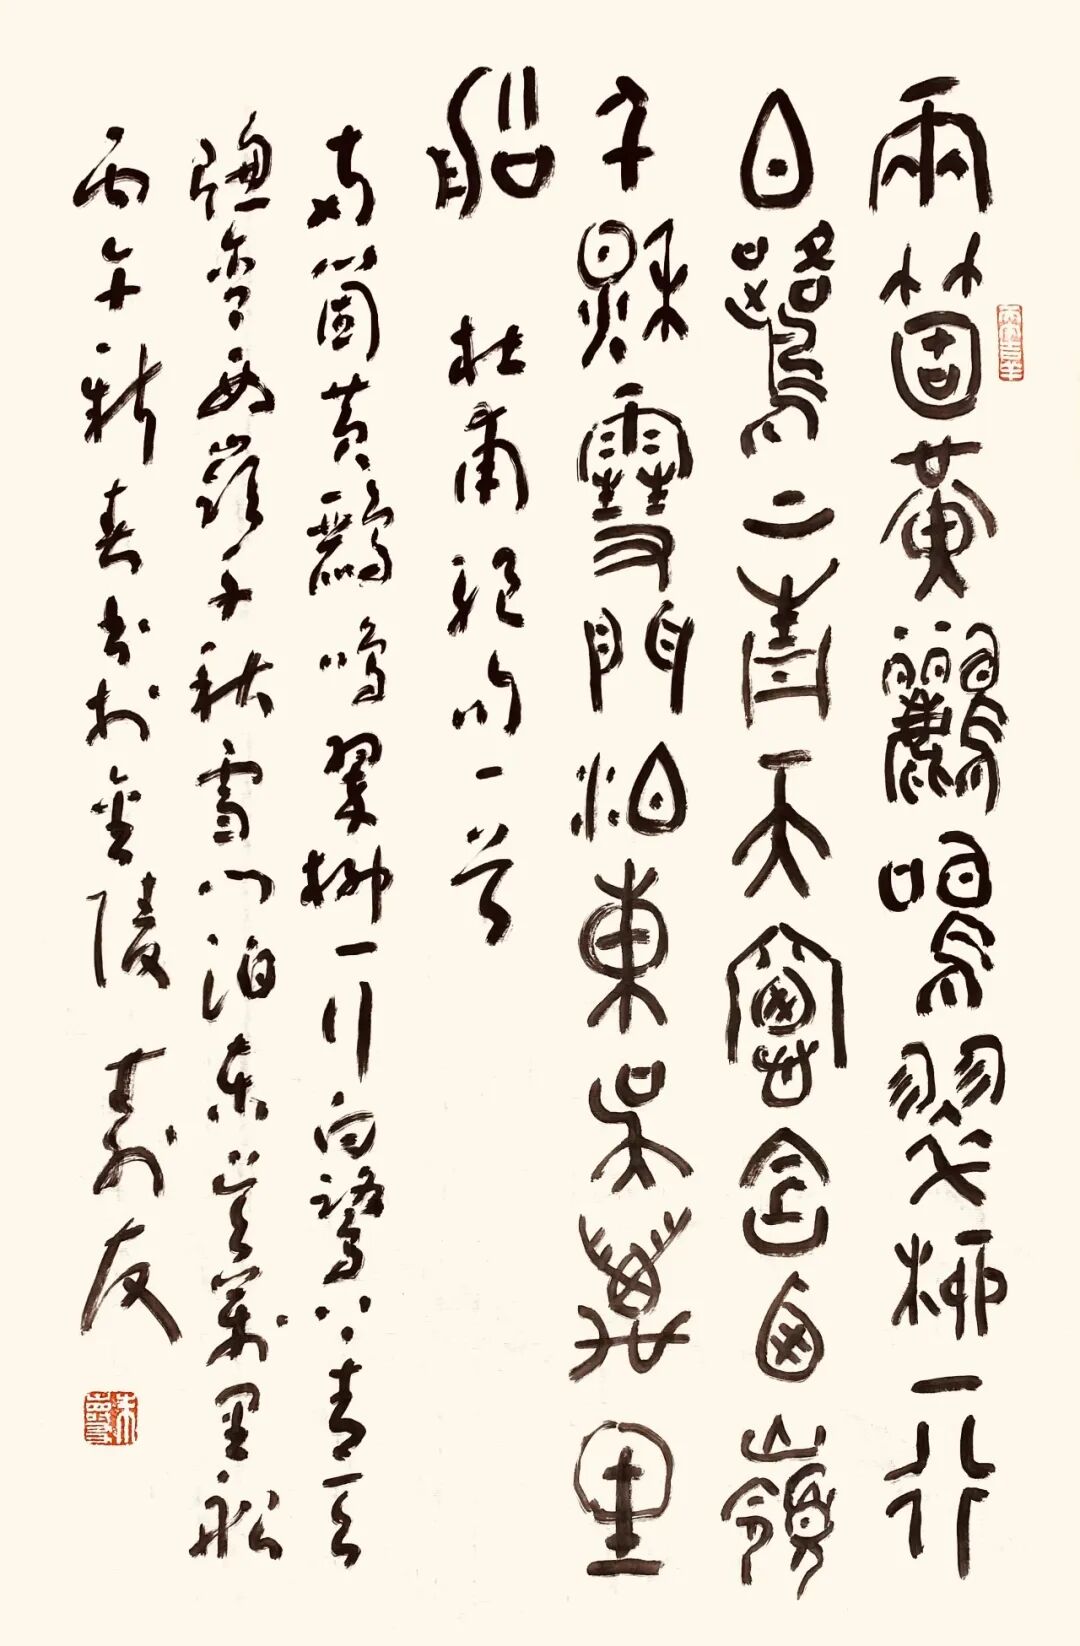 兩箇黃鸝鳴翠柳一行
白鷺上青天窗含西嶺
千秋雪門泊東吳萬里
船 杜甫絕句一首
兩箇黃鸝鳴翠柳一行白鷺上青天
窗含西嶺千秋雪門泊東吳萬里船
丙午新春書於金陵 壽友
朱壽友